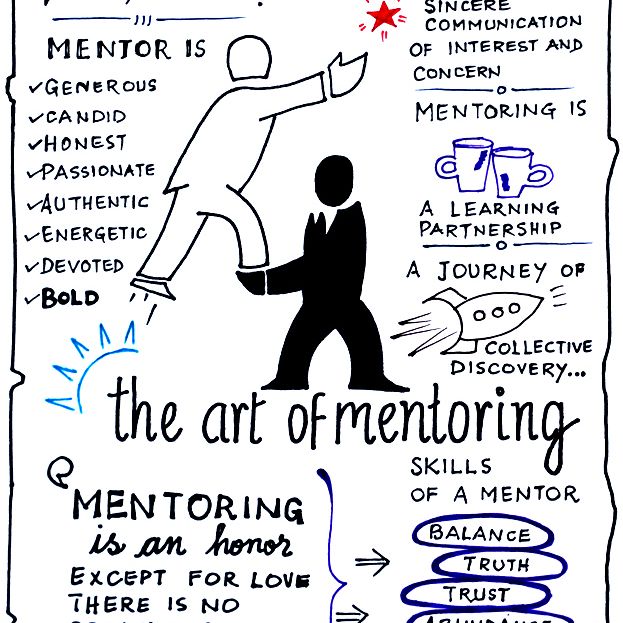 MENTOR IS
✓GENEROUS
✓CANDID
✓HONEST
✓PASSIONATE
✓AUTHENTIC
✓ENERGETIC
✓DEVOTED
✓BOLD
SINCERE
COMMUNICATION
OF INTEREST AND
CONCERN
MENTORING IS
A LEARNING
PARTNERSHIP
A JOURNEY OF
COLLECTIVE
DISCOVERY...
the art of mentoring
MENTORING
is an honor
EXCEPT FOR LOVE
THERE IS NO
SKILLS
OF A MENTOR
BALANCE
TRUTH
TRUST
ABUNDANCE